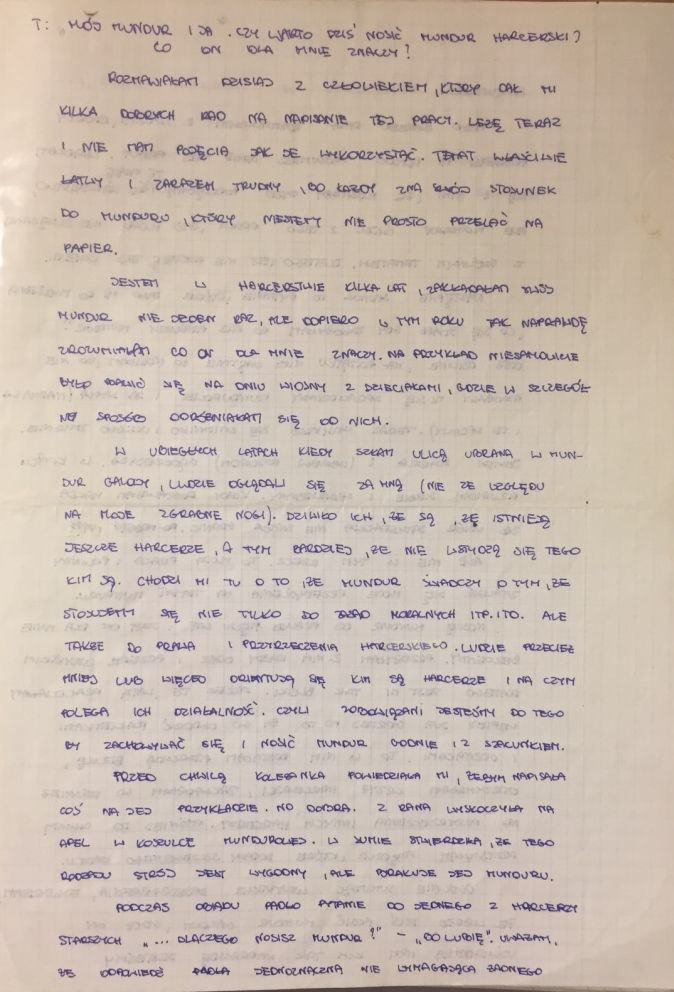 T: MÓJ MUNDUR I JA. CZY WARTO DZIŚ NOSIĆ MUNDUR HARCERSKI?
CO ON DLA MNIE ZNACZY?
ROZMAWIAŁAM DZISIAJ Z CZŁOWIEKIEM, KTÓRY DAŁ MI
KILKA DOBRYCH RAD NA NAPISANIE TEJ PRACY. LEŻĘ TERAZ
I NIE MAM POJĘCIA JAK JE WYKORZYSTAĆ. TEMAT WŁAŚCIWIE
ŁATWY I ZARAZEM TRUDNY, BO KAŻDY ZNA SWÓJ STOSUNEK
DO MUNDURU, KTÓRY NIESTETY NIE PROSTO PRZELAĆ NA
PAPIER.
JESTEM W HARCERSTWIE KILKA LAT, ZAKŁADAŁAM SWÓJ
MUNDUR NIE JEDEN RAZ, ALE DOPIERO W TYM ROKU TAK NAPRAWDĘ
ZROZUMIAŁAM CO ON DLA MNIE ZNACZY. NA PRZYKŁAD NIESAMOWICIE
BYŁO BAWIĆ SIĘ NA DNIU WIOSNY Z DZIECIAKAMI, GDZIE W SZCZEGÓL
NY SPOSÓB ODRÓŻNIAŁAM SIĘ OD NICH.
W UBIEGŁYCH LATACH KIEDY SZŁAM ULICĄ UBRANA W MUN-
DUR GALOWY, LUDZIE OGLĄDALI SIĘ ZA MNĄ (NIE ZE WZGLĘDU
NA MOJE ZGRABNE NOGI). DZIWIŁO ICH, ŻE SĄ, ŻE ISTNIEJĄ
JESZCZE HARCERZE, A TYM BARDZIEJ, ŻE NIE WSTYDZĄ SIĘ TEGO
KIM SĄ. CHODZI MI TU O TO, ŻE MUNDUR ŚWIADCZY O TYM, ŻE
STOSUJEMY SIĘ NIE TYLKO DO ZASAD MORALNYCH ITP. ITD. ALE
TAKŻE DO PRAWA I PRZYRZECZENIA HARCERSKIEGO. LUDZIE PRZECIEŻ
MNIEJ LUB WIĘCEJ ORIENTUJĄ SIĘ KIM SĄ HARCERZE I NA CZYM
POLEGA ICH DZIAŁALNOŚĆ. CZYLI ZOBOWIĄZANI JESTEŚMY DO TEGO
BY ZACHOWYWAĆ SIĘ I NOSIĆ MUNDUR GODNIE I Z SZACUNKIEM.
PRZED CHWILĄ KOLEŻANKA POWIEDZIAŁA MI, ŻEBYM NAPISAŁA
COŚ NA JEJ PRZYKŁADZIE. NO DOBRA. Z RANA WYSKOCZYŁA NA
APEL W KOSZULCE MUNDUROWEJ. W SUMIE STWIERDZIŁA, ŻE TEGO
RODZAJU STRÓJ JEST WYGODNY, ALE BRAKUJE JEJ MUNDURU.
PODCZAS OBIADU PADŁO PYTANIE DO JEDNEGO Z HARCERZY
STARSZYCH „... DLACZEGO NOSISZ MUNDUR?" - „BO LUBIĘ". UWAŻAM,
ŻE ODPOWIEDŹ PADŁA JEDNOZNACZNA NIE WYMAGAJĄCA ŻADNEGO